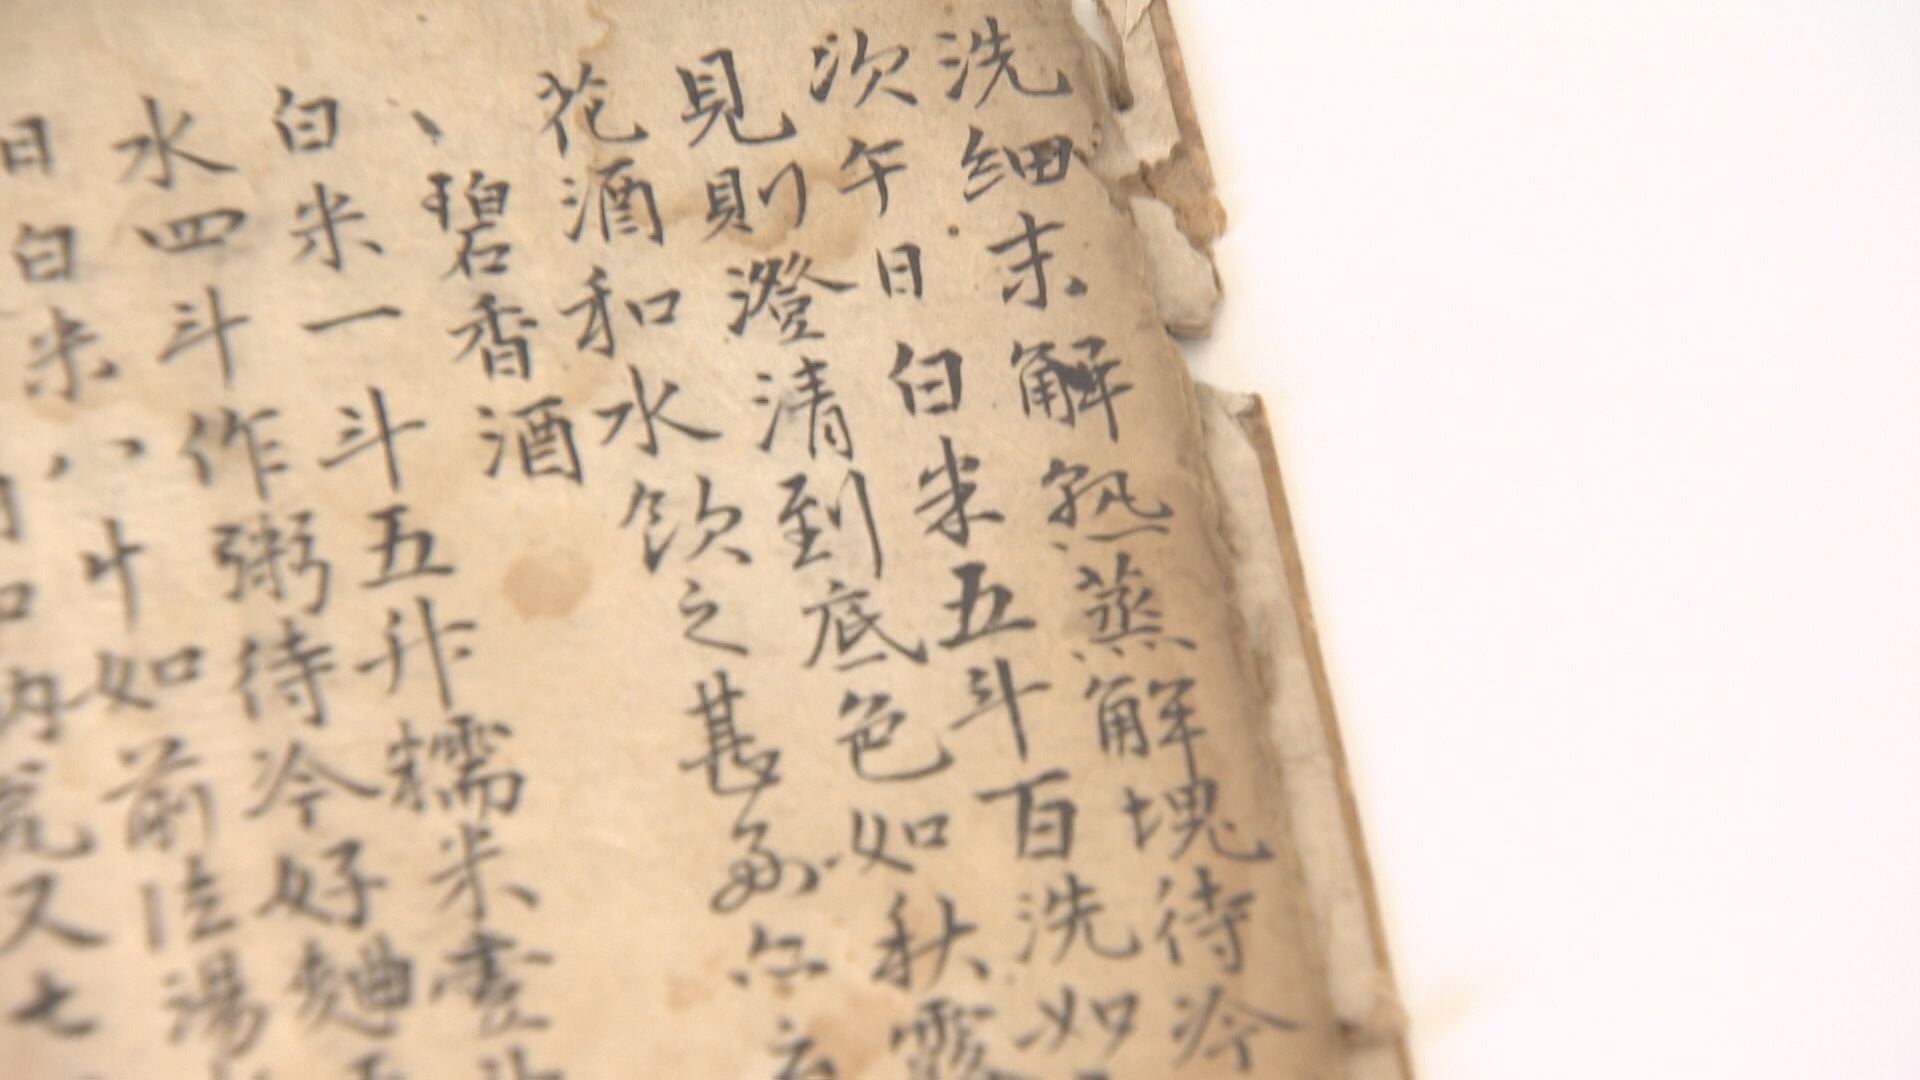 洗細末解熟蒸解塊待冷
次午日白米五斗百洗如
見則澄清到底色如秋露
花酒和水飲之甚
、碧香酒
白米一斗五升糯米壹斗
水四斗作粥待冷好麯五
八十如前
日白米
内
又七